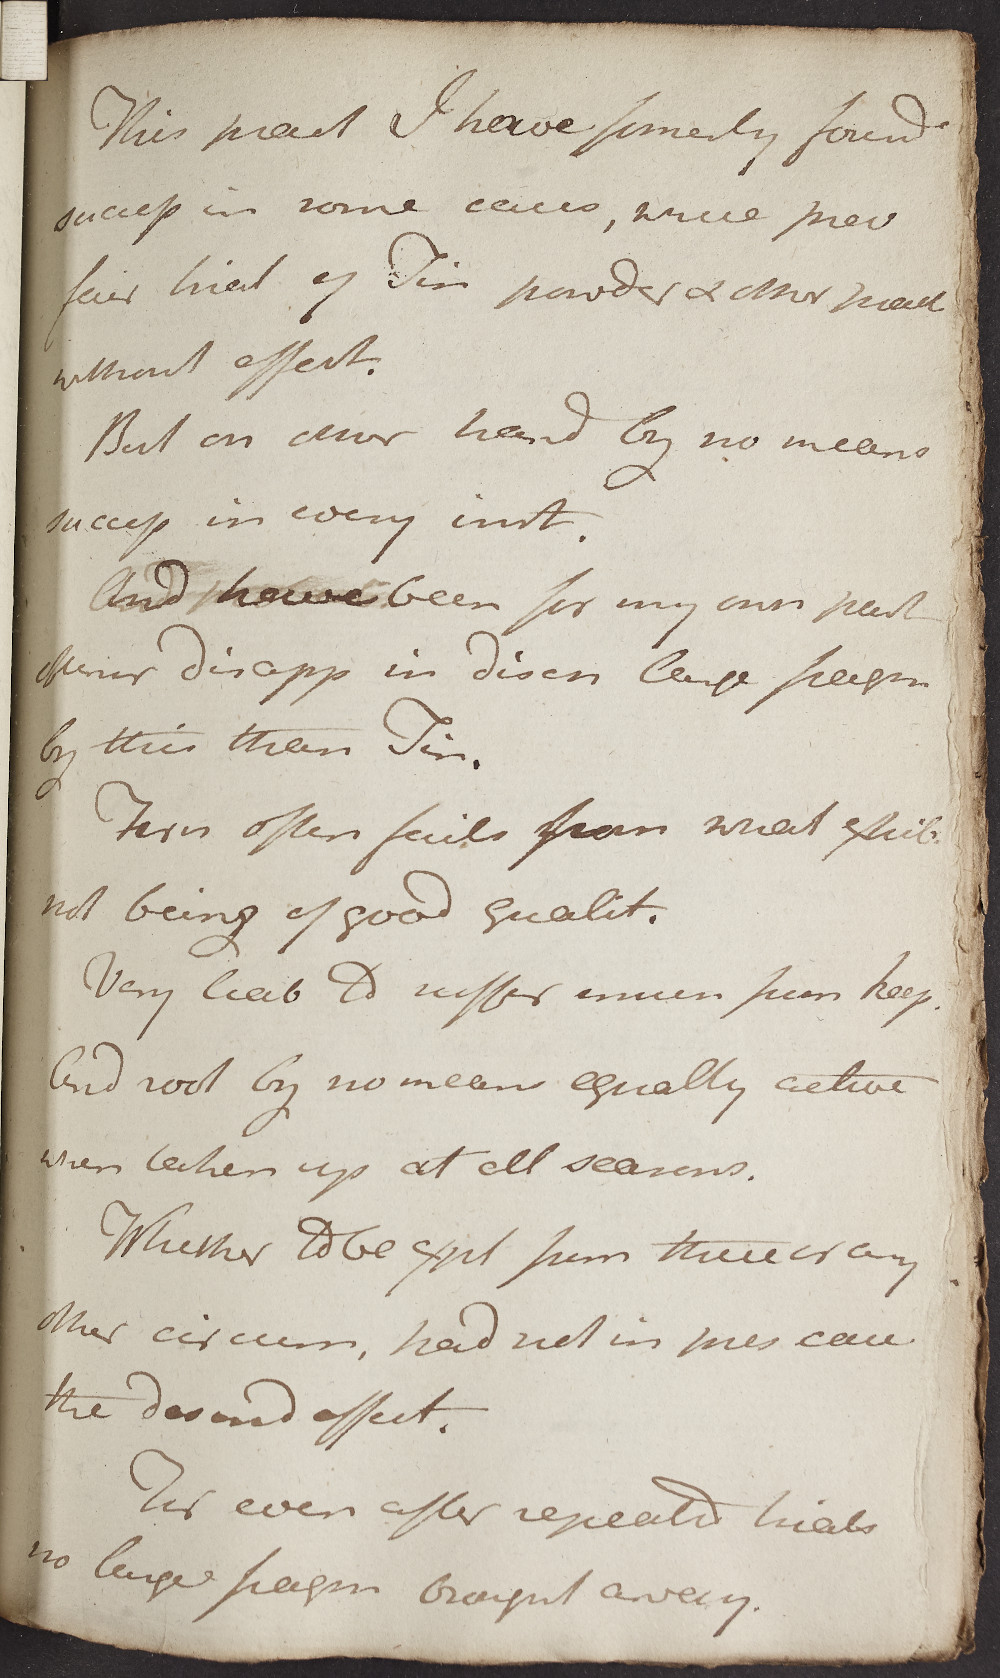 This pract I have formerly found
succesß in some cases, where prev
fair trial of Tin powder & other pract
without effect.
But on other hand by no means
succesß in every inst.
And have been for my own part
oftener disapp in disch large fragm
by this than Tin.
Fern often fails from what exhib.
not being of good qualit.
Very liab to suffer much from keep.
And root by no means equally active
when taken up at all seasons.
Whether to be expl from these or any
other circum, had not in pres case
the desired effect.
For even after repeated trials
no large fragm brought away.